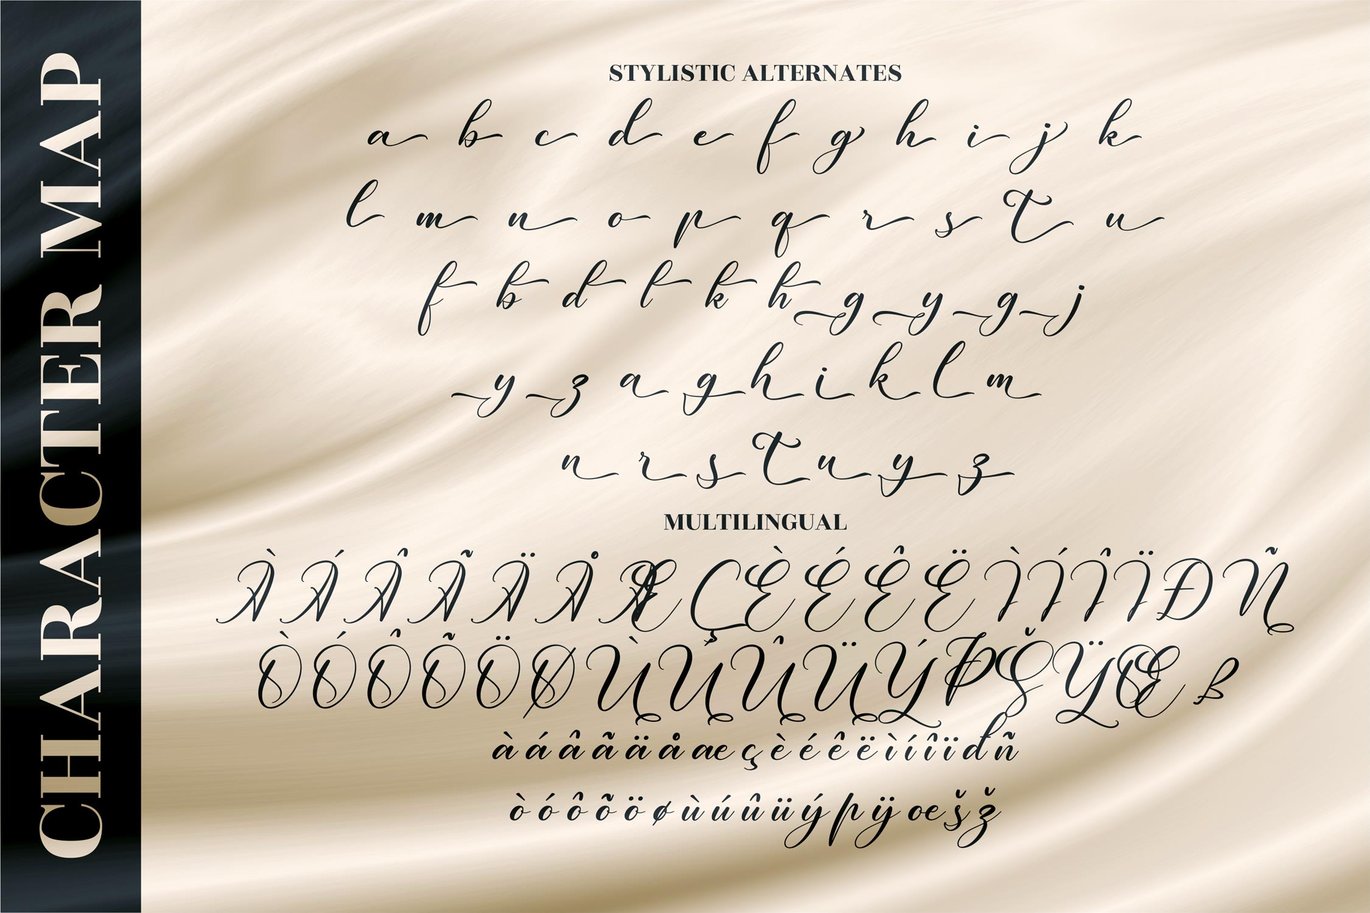 CHARACTER MAP
STYLISTIC ALTERNATES
a b c d e f g h i j k
l m n o p q r s t u
f b d l k h g y g j
y z a g h i k l m
n r s t u y z
MULTILINGUAL
À Á Â Ã Ä Å Æ Ç È É Ê Ë Ì Í Î Ï Ð Ñ
Ò Ó Ô Õ Ö Ø Ù Ú Û Ü Ý Þ Š Ÿ Œ ß
à á â ã ä å æ ç è é ê ë ì í î ï ð ñ
ò ó ô õ ö ø ù ú û ü ý þ ÿ œ š ž